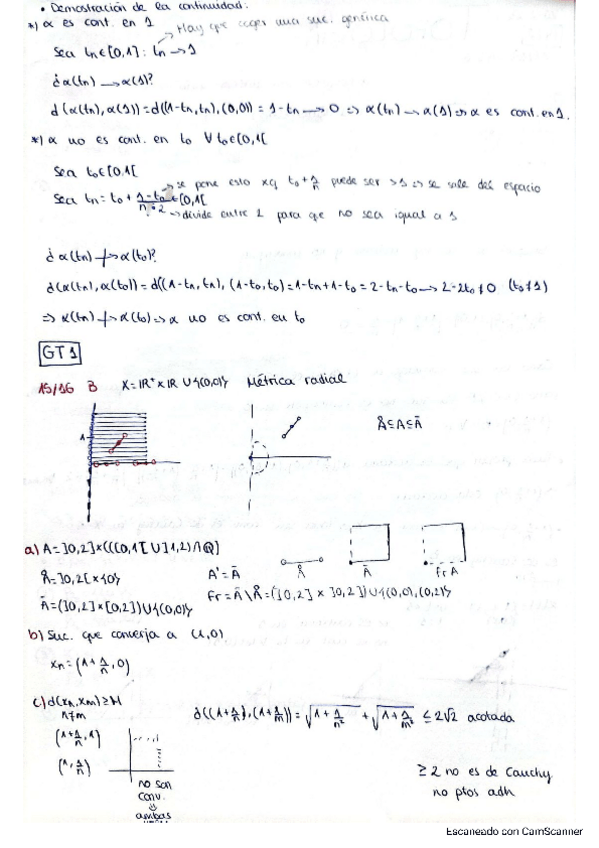 • Demostración de la continuidad:
*) α es cont. en 1 → Hay que coger una suc. genérica
Sea tn∈[0,1] : tn → 1
¿α(tn) → α(1)?
d(α(tn), α(1)) = d((1-tn, tn), (0,0)) = 1-tn → 0 ⇒ α(tn) → α(1) ⇒ α es cont. en 1.
*) α no es cont. en t₀ ∀t₀∈[0,1[
Sea t₀∈[0,1[ → se pone esto xq t₀ + 1/n puede ser >1 ⇒ se sale del espacio
Sea tn = t₀ + (1-t₀)/(n·2) ∈ [0,1[ → divide entre 2 para que no sea igual a 1
¿α(tn) ↛ α(t₀)?
d(α(tn), α(t₀)) = d((1-tn, tn), (1-t₀, t₀) = 1-tn + 1-t₀ = 2-tn-t₀ → 2-2t₀ ≠ 0 (t₀≠1)
⇒ α(tn) ↛ α(t₀) ⇒ α no es cont. en t₀
GT 1
15/16 B X = ℝ⁺ x ℝ ∪ {(0,0)} Métrica radial
1
Å ⊆ A ⊆ Ā
a) A = ]0,2] x (([0,1[ ∪ ]1,2) ∩ ℚ]
Å Ā Fr A
Å = ]0,2[ x {0} A' = Ā
Ā = (]0,2] x [0,2]) ∪ {(0,0)} Fr = Ā \ Å = (]0,2] x ]0,2]) ∪ {(0,0), (0,2)}
b) Suc. que converja a (1,0)
xn = (1 + 1/n, 0)
c) d(xn, xm) ≥ M
n≠m
d((1+1/n), (1+1/m)) = √(1+1/n²) + √(1+1/m²) ≤ 2√2 acotada
(1+1/n, 1)
(1, 1/n)
no son
conv.
ambas
≥ 2 no es de Cauchy
no ptos adh
Escaneado con CamScanner